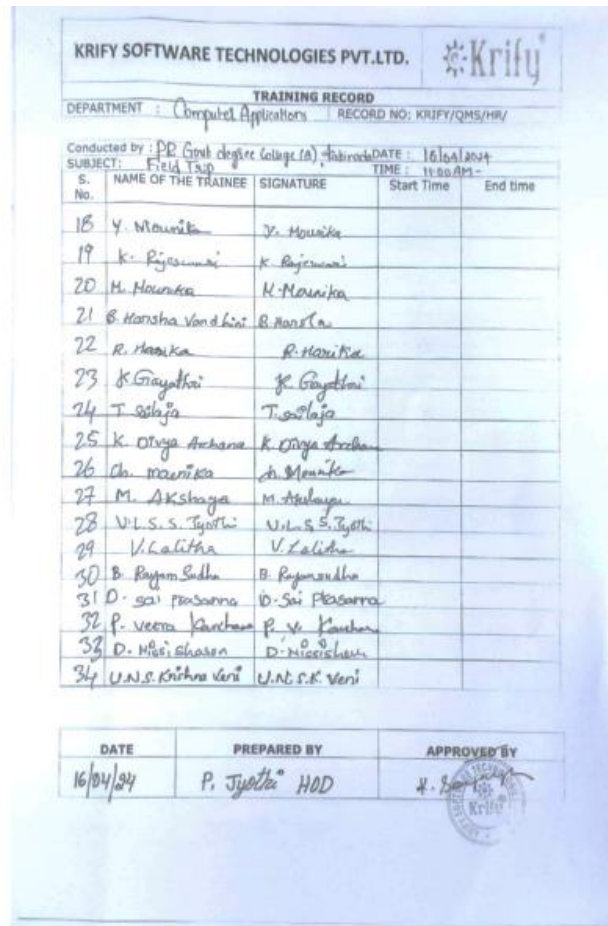 KRIFY SOFTWARE TECHNOLOGIES PVT.LTD. Krify
TRAINING RECORD
DEPARTMENT : Computer Applications RECORD NO: KRIFY/QMS/HR/
Conducted by : PR Govt degree College (A) DATE : 16/04/2024
SUBJECT: Field Trip TIME : 11:00 AM -
S. No. NAME OF THE TRAINEE SIGNATURE Start Time End time
18 Y. Mounika Y. Mounika
19 K. Rajeswari K. Rajeswari
20 M. Mounika M. Mounika
21 B. Harsha Vardhini B. Harsha
22 R. Harika R. Harika
23 K Gayathri K Gayathri
24 T. Sailaja T. Sailaja
25 K. Divya Archana K. Divya Archana
26 Ch. Mounika Ch. Mounika
27 M. Akshaya M. Akshaya
28 V.L.S.S. Jyothi V.L.S.S. Jyothi
29 V. Lalitha V. Lalitha
30 B. Sudha B.
31 D. Sai Prasanna D. Sai Prasanna
32 P. Veera Kanchana P. V. Kanchana
33 D. D.
34 U.N.S. Krishna Veni U.N.S.K Veni
DATE PREPARED BY APPROVED BY
16/04/24 P. Jyothi HOD
Krify